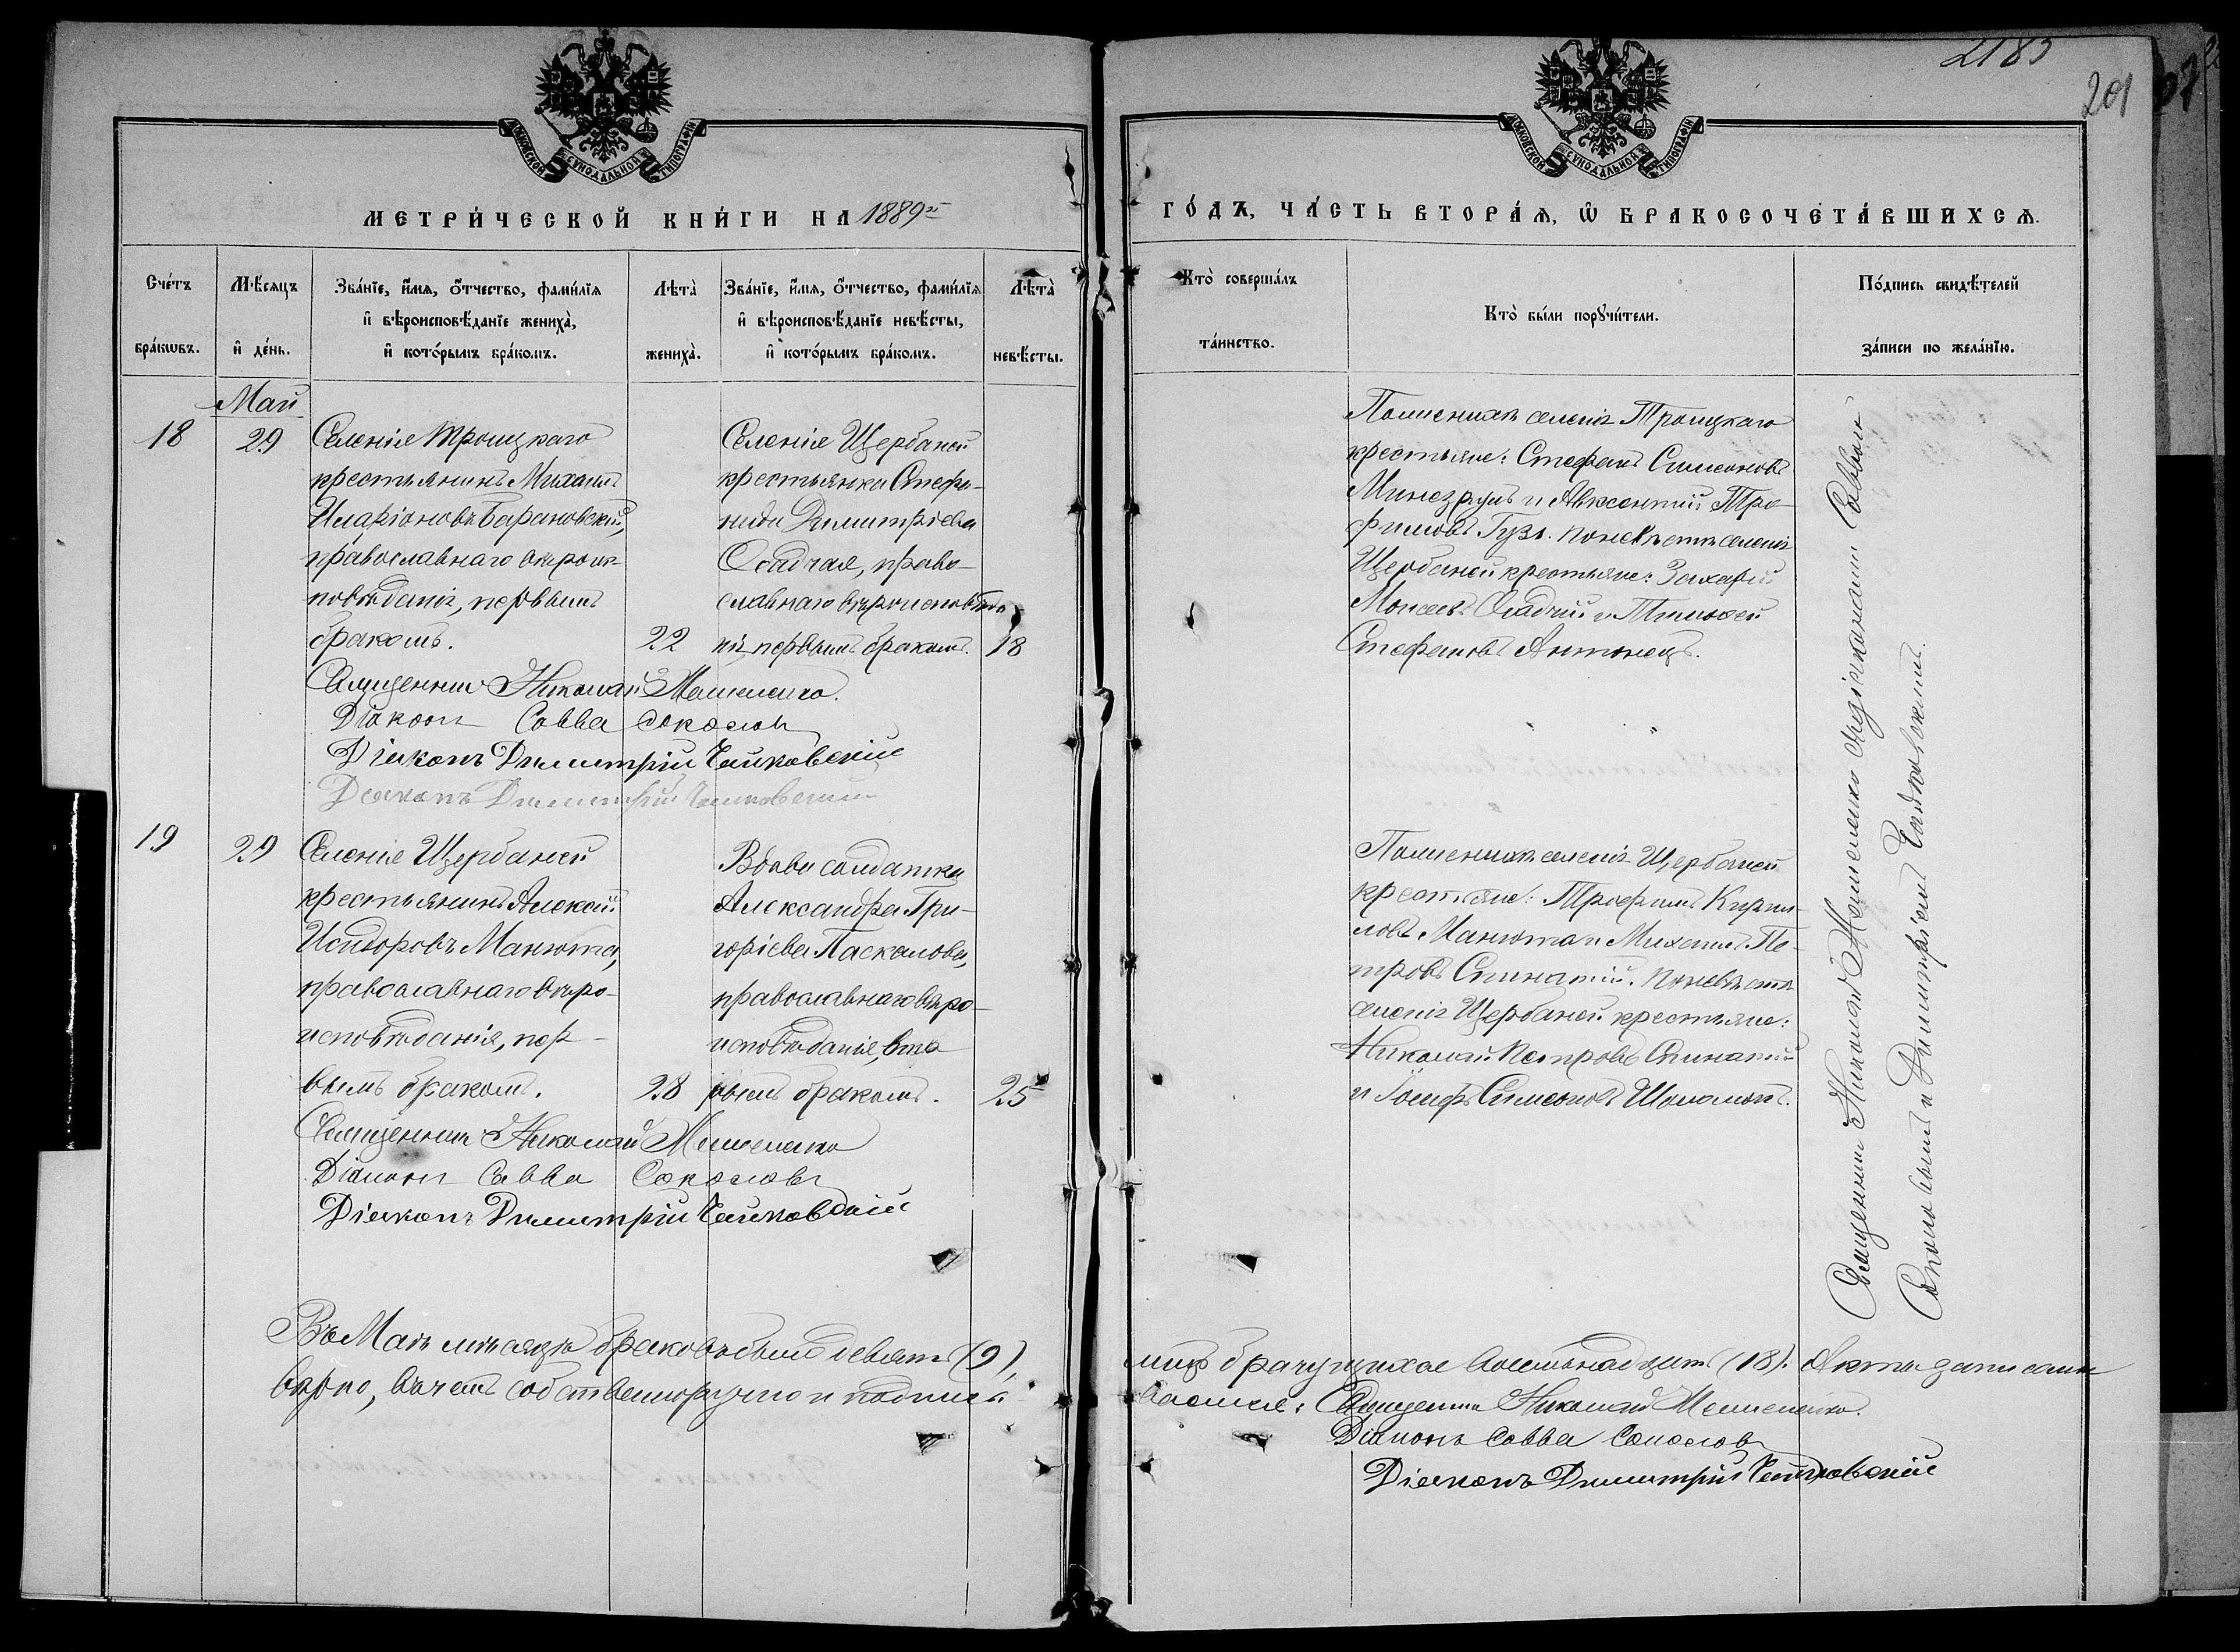 2185
201
МОСКОВСКОЙ СУНОДАЛЬНОЙ ТИПОГРАФІИ
МОСКОВСКОЙ СУНОДАЛЬНОЙ ТИПОГРАФІИ
МЕТРИ́ЧЕСКОЙ КНИ́ГИ НА 1889й
ГО́ДЪ, ЧА́СТЬ ВТОРА́Я, Ѽ БРАКОСОЧЕТА́ВШИХСЯ.
Сче́тъ
бра́кѡвъ.
Мѣ́сяцъ
и҆ де́нь.
Зва́нїе, и҆́мя, ѻ҆́тчество, фами́лїя
и҆ вѣроисповѣ́данїе жениха̀,
и҆ кото́рымъ бра́комъ.
Лѣта̀
жениха̀.
Зва́нїе, и҆́мя, ѻ҆́тчество, фами́лїя
и҆ вѣроисповѣ́данїе невѣ́сты,
и҆ кото́рымъ бра́комъ.
Лѣта̀
невѣ́сты.
Кто̀ соверша́лъ
та́инство.
Кто̀ бы́ли порꙋчи́тели.
По́дпись свидѣ́телей
за́писи по жела́нїю.
Май
18
29
Селенія Троицкаго
крестьянинъ Михаилъ
Иларіоновъ Барановскій,
православнаго вѣроис-
повѣданія, первымъ
бракомъ.
22
Селенія Щербаней
крестьянка Стефа-
нида Димитріева
Осадчая, право-
славнаго вѣроисповѣда
нія, первымъ бракомъ.
18
Священникъ Николай
Діаконъ Савва Соколовъ
Діаконъ Димитрій Чайковскій
Діаконъ Димитрій Чайковскій
По женихѣ селенія Троицкаго
крестьяне: Стефанъ Симеоновъ
и Авксентій Тро-
фимовъ Гузь. по невѣстѣ селенія
Щербаней крестьяне: Захарій
Моисеевъ Осадчій и Тимофей
Стефановъ Антонецъ.
19
29
Селенія Щербаней
крестьянинъ Алексей
Исидоровъ Манюта,
православнаго вѣро-
исповѣданія, пер-
вымъ бракомъ.
28
Вдова солдатка
Александра Гри-
горіева Паскалова,
православнаго вѣро-
исповѣданія, вто
рымъ бракомъ.
25
Священникъ Николай
Діаконъ Савва Соколовъ
Діаконъ Димитрій Чайковскій
По женихѣ селенія Щербаней
крестьяне: Трофимъ Кирил-
ловъ Манюта и Михаилъ Пе-
тровъ Спинатій. по невѣстѣ
селенія Щербаней крестьяне:
Николай Петровъ Спинатій
и Іосифъ Симеоновъ
Священникъ Николай съ діаконами Саввою
Соколовымъ и Димитріемъ Чайковскимъ.
Въ Маѣ мѣсяцѣ браковъ было девять (9),
лицъ брачущихся восемьнадцать (18). Акты записаны
вѣрно, въ чемъ собственноручно и подписы-
ваемся: Священникъ Николай
Діаконъ Савва Соколовъ
Діаконъ Димитрій Чайковскій